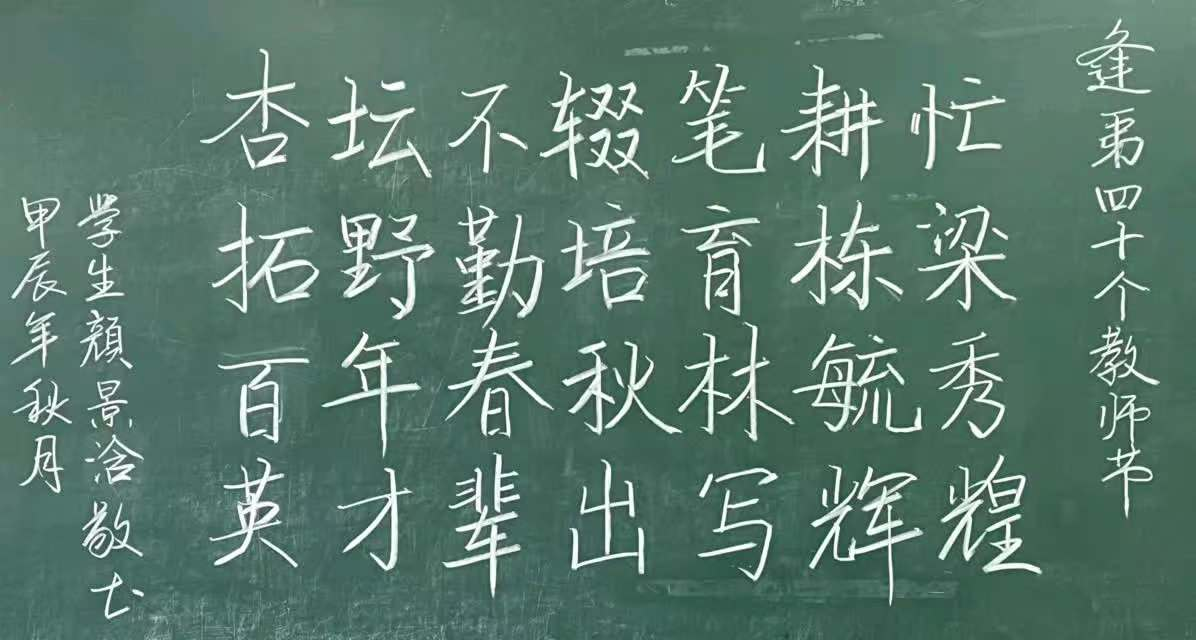 逢第四十个教师节
杏坛不辍笔耕忙
拓野勤培育栋梁
百年春秋林毓秀
英才辈出写辉煌
学生颜景浛敬书
甲辰年秋月